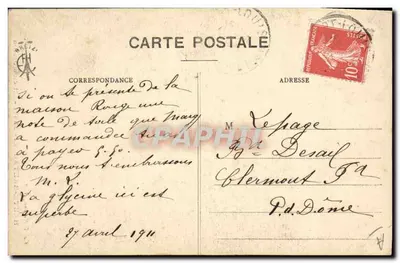 CARTE POSTALE
CORRESPONDANCE
ADRESSE
si on te présente de la
maison Rouge une
note de toile que Mary
a commandée
à payer
Vous nous t'embrassons
M. L.
La glycine ici est
superbe
27 avril 1911
M Lepage
Bd Desaix
Clermont Fd
P.d. Dôme
10c
CPAPHIL